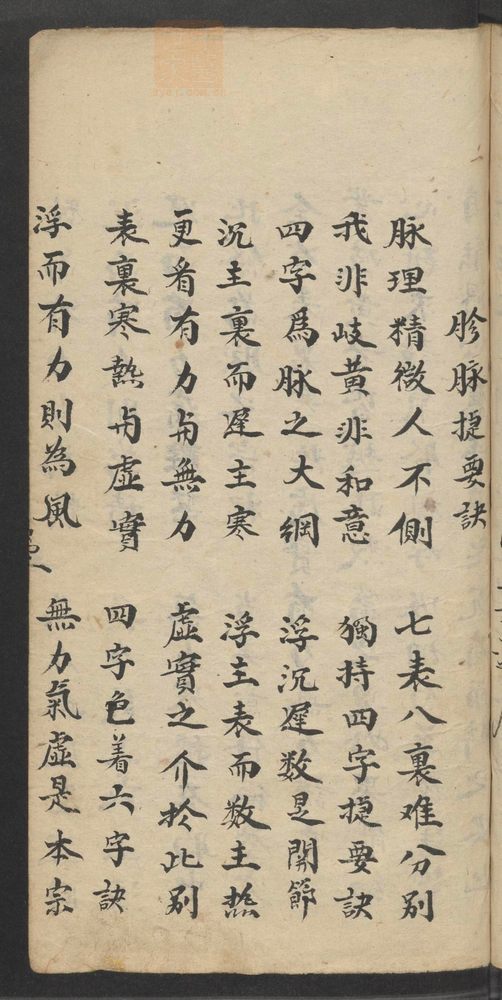 胗脉捷要訣
脉理精微人不側 七表八裏难分别
我非岐黄非和意 獨持四字捷要訣
四字爲脉之大綱 浮沉遅数是関節
沉主裏而遅主寒 浮主表而数主热
更看有力与無力 虚實之介於此别
表裏寒熱与虚實 四字包着六字訣
浮而有力則為風 無力氣虚是本宗